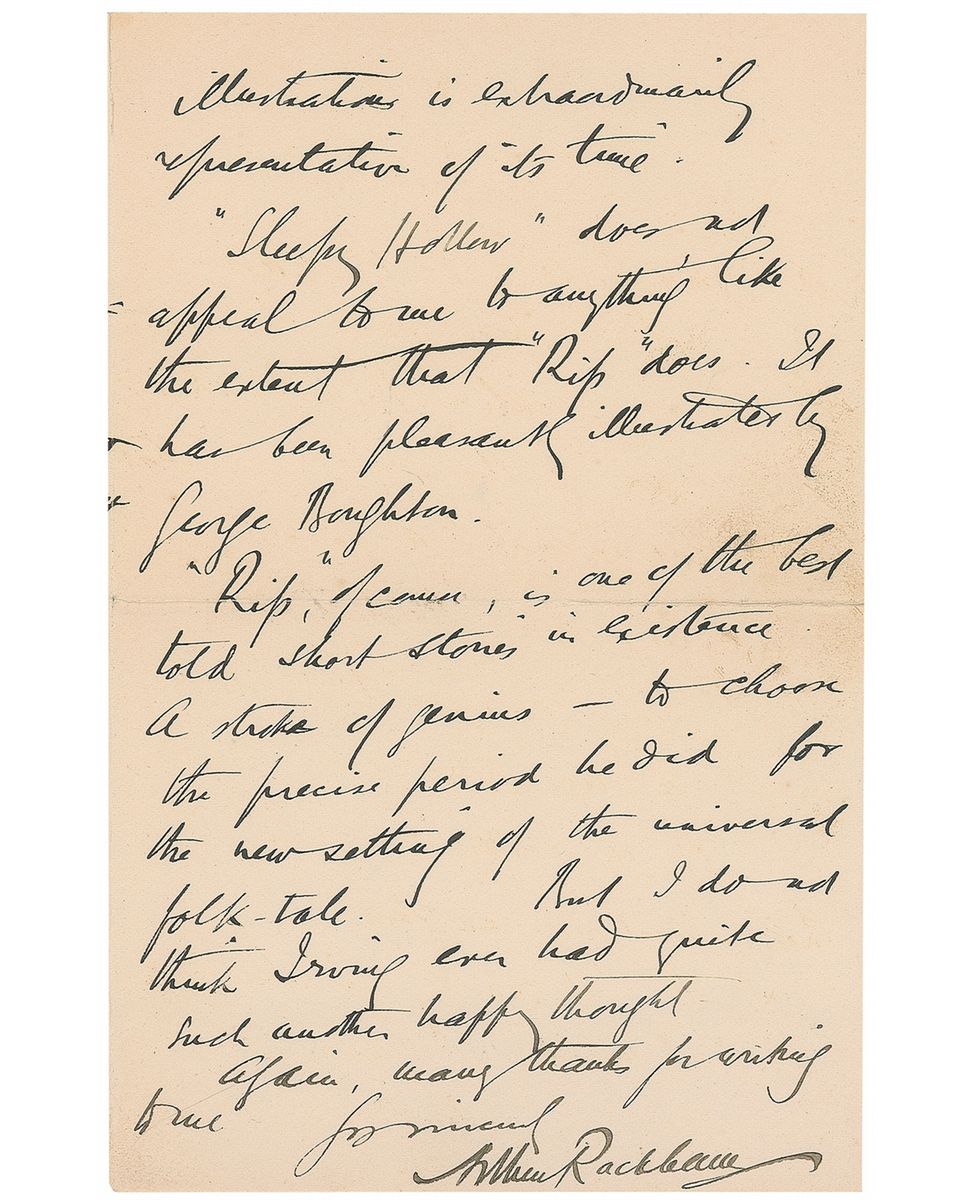 illustrations is extraordinarily
representative of its time.
"Sleepy Hollow" does not
appeal to me to anything like
the extent that "Rip" does. It
has been pleasantly illustrated by
George Boughton.
"Rip," of course, is one of the best
told short stories in existence.
A stroke of genius — to choose
the precise period he did for
the new setting of the universal
folk-tale. But I do not
think Irving ever had quite
such another happy thought
Again, many thanks for writing
to me
Arthur Rackham